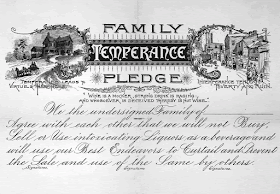 FAMILY
TEMPERANCE
PLEDGE
TEMPERANCE LEADS TO
VIRTUE &
INTEMPERANCE TENDS TO
POVERTY AND RUIN.
"WINE IS A MOCKER, STRONG DRINK IS RAGING,
AND WHOSOEVER IS DECEIVED THEREBY IS NOT WISE."
We the undersigned Family of
Agree with each other that we will not Buy,
Sell or Use intoxicating Liquors as a beverage and
will use our Best Endeavors to Curtail and Prevent
the Sale and use of the Same by others.
Signatures. Signatures.